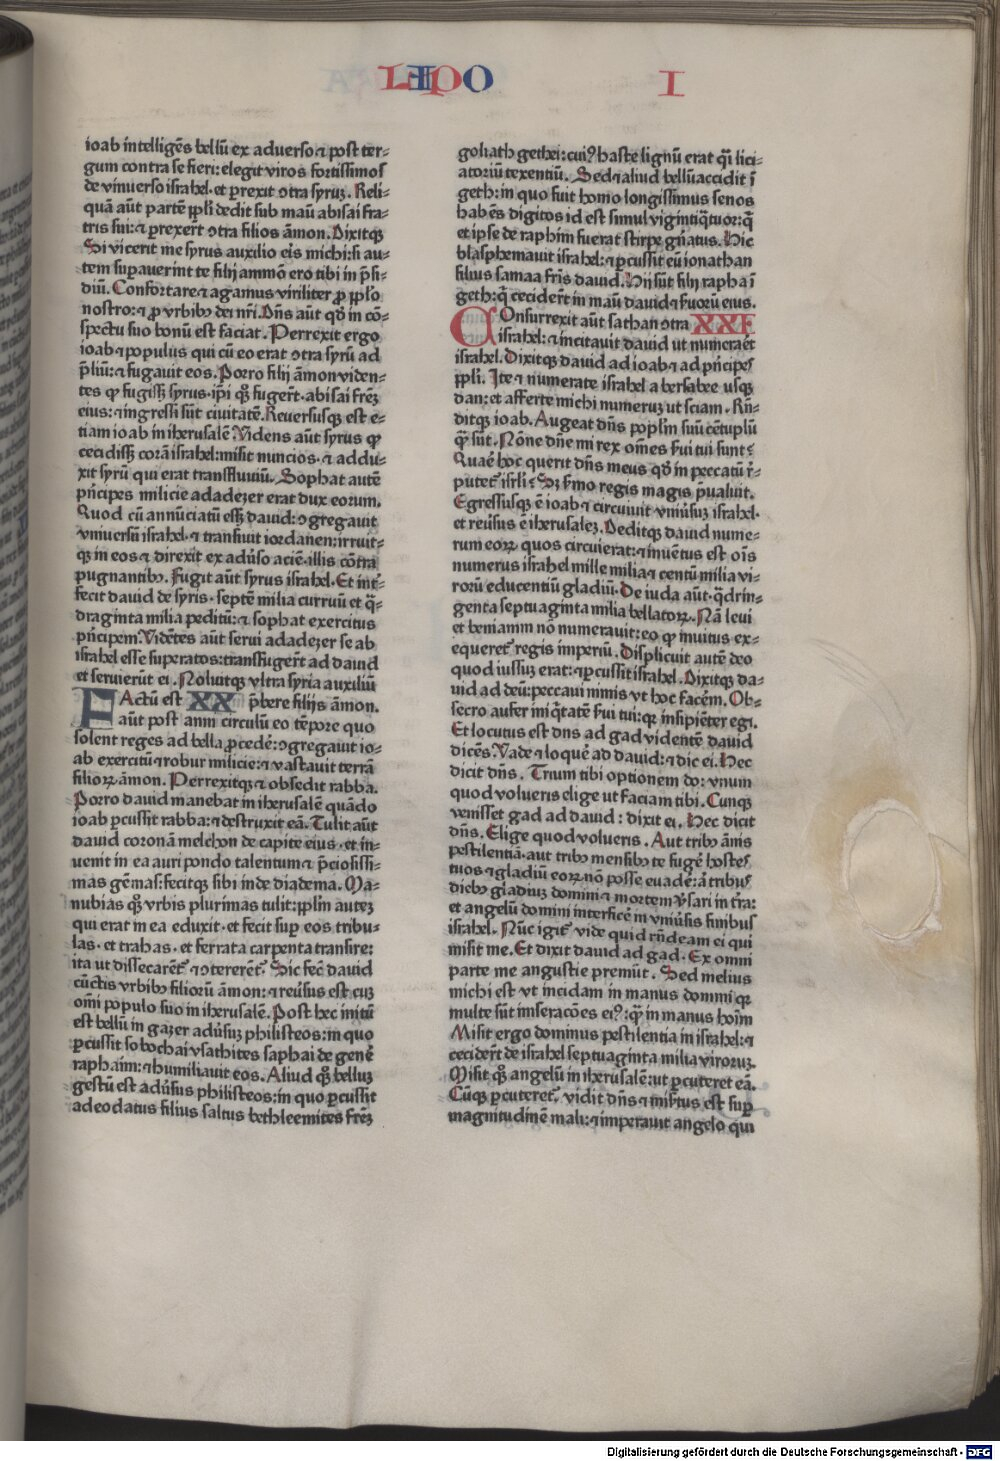 LIPO I
ioab intelligēs bellū ex aduerso ⁊ post ter⸗
gum contra se fieri: elegit viros fortissimos
de vniuerso israhel· et perrexit ꝯtra syruꝫ. Reli⸗
quā aūt partē ppl̄i dedit sub manū abisai fra⸗
tris sui: ⁊ perrexer̄t ꝯtra filios āmon. Dixitqꝫ
Si vicerit me syrus auxilio eris michi: si au⸗
tem superauerint te filij ammō ero tibi in p̄si⸗
diū. Confortare ⁊ agamus viriliter ꝓ ppl̄o
nostro: ⁊ ꝓ vrbibꝰ dei nr̄i. Dn̄s aūt qđ in cō⸗
spectu suo bonū est faciat. Perrexit ergo
ioab ⁊ populus qui cū eo erat ꝯtra syrū ad
p̄liū: ⁊ fugauit eos. Porro filij āmon viden⸗
tes ꝙ fugissꝫ syrus· ip̄i qꝫ fuger̄t· abisai fr̄eꝫ
eius: ⁊ ingressi sūt ciuitatē. Reuersusqꝫ est e⸗
tiam ioab in iherusalē. Videns aūt syrus ꝙ
cecidissꝫ corā israhel: misit nuncios· ⁊ addu⸗
xit syrū qui erat transfluuiū. Sophat autē
pn̄cipes milicie adadezer erat dux eorum.
Quod cū annūciatū essꝫ dauid: ꝯgregauit
vniuersū israhel· ⁊ transiuit iordanen: irruit⸗
qꝫ in eos ⁊ direxit ex adūso aciē· illis cōtra
pugnantibꝰ. Fugit aūt syrus israhel· Et int̄⸗
fecit dauid de syris· septē milia curruū et q̄⸗
draginta milia peditū: ⁊ sophat exercitus
pn̄cipem. Vidētes aūt serui adadezer se ab
israhel esse superatos: transfuger̄t ad dauid
et seruierūt ei. Noluitqꝫ vltra syria auxiliū
FActū est XX p̄bere filijs āmon.
aūt post anni circulū eo tēpore quo
solent reges ad bella ꝓcedē: ꝯgregauit io⸗
ab exercitū ⁊ robur milicie: ⁊ vastauit terrā
filioꝝ āmon. Perrexitqꝫ ⁊ obsedit rabba.
Porro dauid manebat in iherusalē quādo
ioab ꝑcussit rabba: ⁊ destruxit eā. Tulit aūt
dauid coronā melchon de capite eius· et in⸗
uenit in ea auri pondo talentum ⁊ p̄ciosissi⸗
mas gēmas: fecitqꝫ sibi inde diadema. Ma⸗
nubias qꝫ vrbis plurimas tulit: ppl̄m auteꝫ
qui erat in ea eduxit· et fecit suꝑ eos tribu⸗
las· et trahas· et ferrata carpenta transire:
ita ut dissecarēt̉ ⁊ ꝯtererēt̉. Sic fec̄ dauid
cūctis vrbibꝰ filiorū āmon: ⁊ reūsus est cuꝫ
om̄i populo suo in iherusalē. Post hec initū
est bellū in gazer adūsuꝫ philisteos: in quo
ꝑcussit sobochai vsathites saphai de genē
raphaim: ⁊ humiliauit eos. Aliud qꝫ belluꝫ
gestū est adūsus philisteos: in quo ꝑcussit
adeodatus filius saltus bethleemites fr̄eꝫ
goliath gethei: cuiꝰ haste lignū erat q̄si lici⸗
atoriū texentiū. Sed ⁊ aliud bellū accidit ī
geth: in quo fuit homo longissimus senos
habēs digitos id est simul vigintiq̄tuor: q̄
et ipse de raphim fuerat stirpe gn̄atus. Hic
blasphemauit israhel: ⁊ ꝑcussit eū ionathan
filius samaa fr̄is dauid. Hij sūt filij rapha ī
geth: q̄ cecider̄t in manū dauid ⁊ ẜuorū eius.
COnsurrexit aūt sathan ꝯtra XXI
israhel: ⁊ incitauit dauid ut numeraēt
israhel. Dixitqꝫ dauid ad ioab ⁊ ad pn̄cipes
ppl̄i. Ite ⁊ numerate israhel a bersabee usqꝫ
dan: et afferte michi numeruꝫ ut sciam. Rn̄⸗
ditqꝫ ioab. Augeat dn̄s popl̄m suū cētuplū
q̄ꝫ sūt. Nōne dn̄e mi rex om̄es ẜui tui sunt?
Quaē hoc querit dn̄s meus qđ in peccatū r̄⸗
putet̉ isrl̄i? Sꝫ ẜmo regis magis p̄ualuit.
Egressusqꝫ ē ioab ⁊ circuiuit vniūsuꝫ israhel·
et reūsus ē iherusaleꝫ. Deditqꝫ dauid nume⸗
rum eoꝝ quos circuierat: ⁊ inuētus est oīs
numerus israhel mille milia ⁊ centū milia vi⸗
rorū educentiū gladiū. De iuda aūt· q̄drin⸗
genta septuaginta milia bellatoꝝ. Nā leui
et beniamin nō numerauit: eo ꝙ inuitus ex⸗
equeret̉ regis imperiū. Displicuit autē deo
quod iussuꝫ erat: ⁊ ꝑcussit israhel. Dixitqꝫ da⸗
uid ad deū: peccaui nimis vt hoc facēm. Ob⸗
secro aufer iniq̄tatē ẜui tui: qꝛ insipiēter egi.
Et locutus est dn̄s ad gad videntē dauid
dicēs. Vade ⁊ loquē ad dauid: ⁊ dic ei. Hec
dicit dn̄s. Trium tibi optionem do: vnum
quod volueris elige ut faciam tibi. Cunqꝫ
venisset gad ad dauid: dixit ei. Hec dicit
dn̄s. Elige quod volueris. Aut tribꝰ ānis
pestilentiā· aut tribꝰ mensibꝰ te fugē hostes
tuos ⁊ gladiū eoꝝ nō posse euadē: aut tribus
diebꝰ gladiuꝫ domini ⁊ mortem ṽsari in tr̄a:
et angelū domini interficē in vniūsis finibus
israhel. Nūc igit̉ vide quid rn̄deam ei qui
misit me. Et dixit dauid ad gad. Ex omni
parte me angustie premūt. Sed melius
michi est vt incidam in manus domini qꝛ
multe sūt miseracōes eiꝰ: q̄ꝫ in manus hoīm
Misit ergo dominus pestilentia in israhel: ⁊
cecider̄t de israhel septuaginta milia viroruꝫ.
Misit qꝫ angelū in iherusalē: ut ꝑcuteret eā.
Cūqꝫ ꝑcuteret̉ vidit dn̄s ⁊ misertus est suꝑ
magnitudinē mali: ⁊ imperauit angelo qui
Digitalisierung gefördert durch die Deutsche Forschungsgemeinschaft - DFG